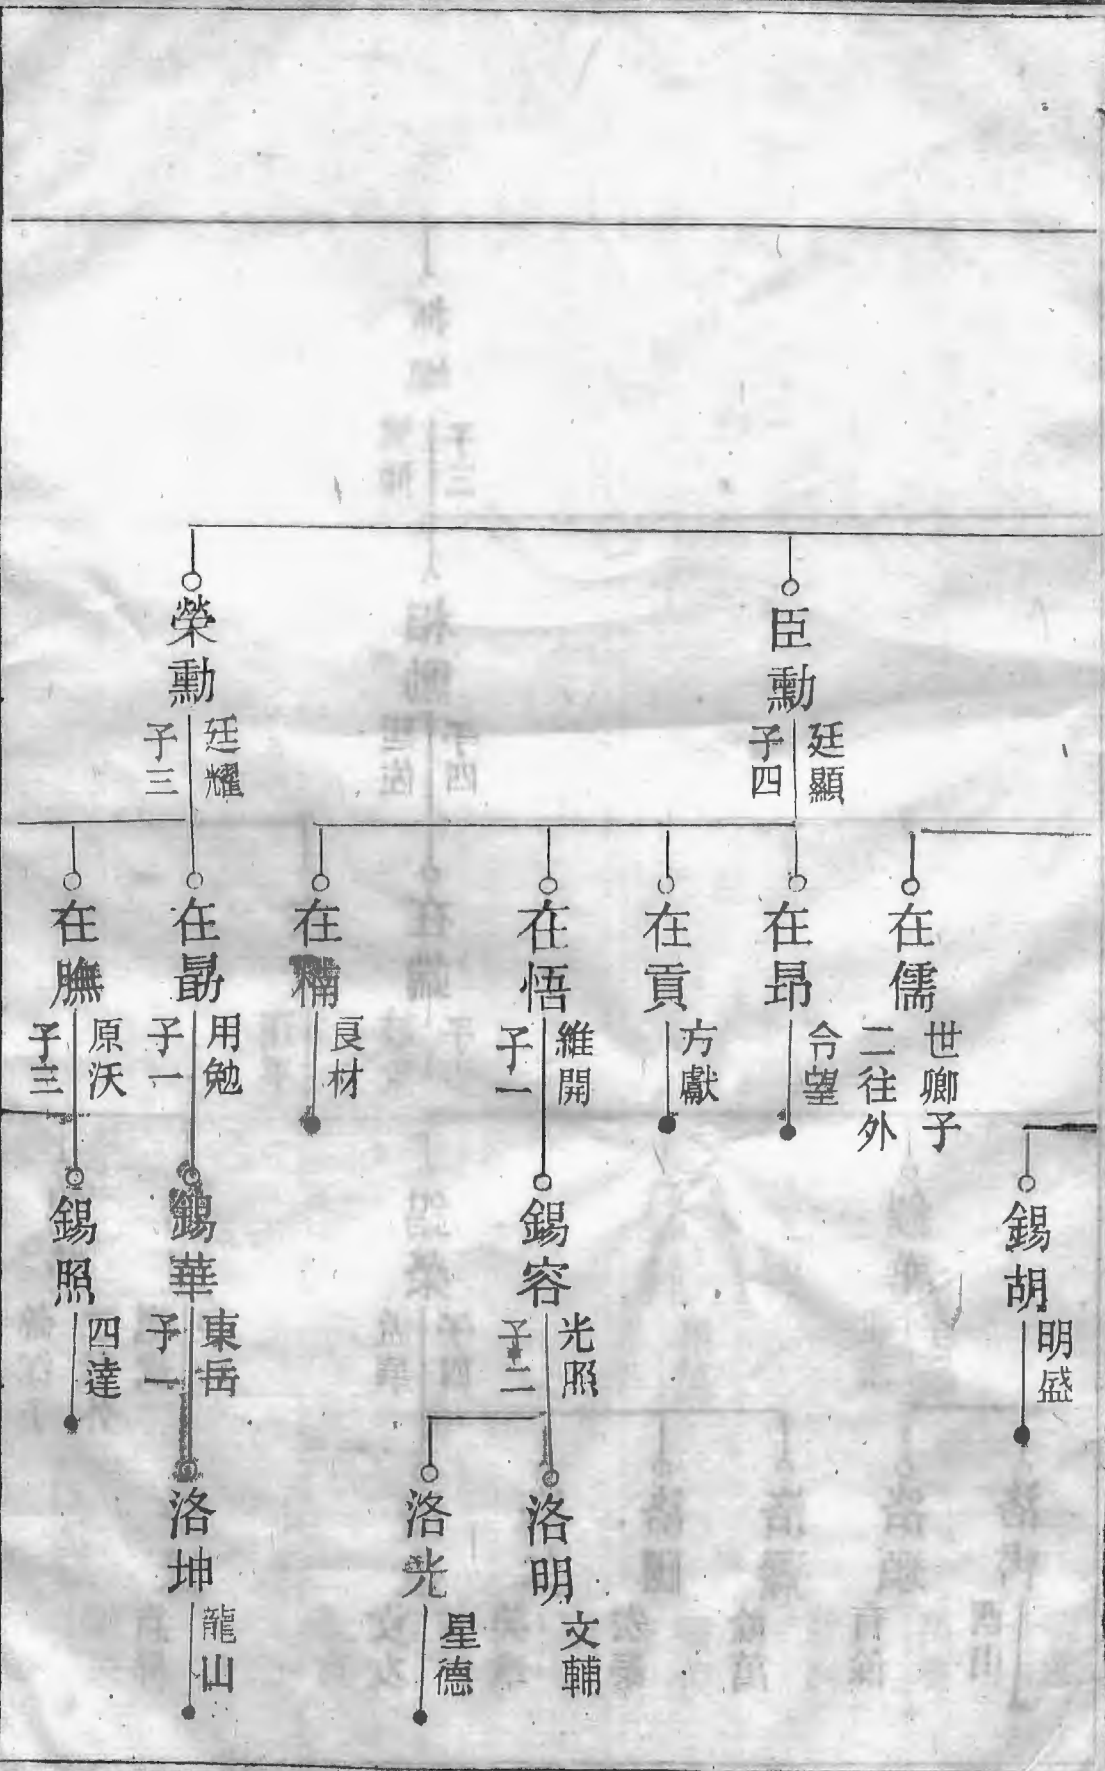 臣勳
廷顯
子四
榮勳
廷耀
子三
在儒
世卿子
二往外
在昂
令望
在貢
方獻
在悟
維開
子一
在
良材
在勗
用勉
子一
在膴
原沃
子三
錫胡
明盛
錫容
光照
子二
錫華
東岳
子一
錫照
四達
洛明
文輔
洛光
星德
洛坤
龍山